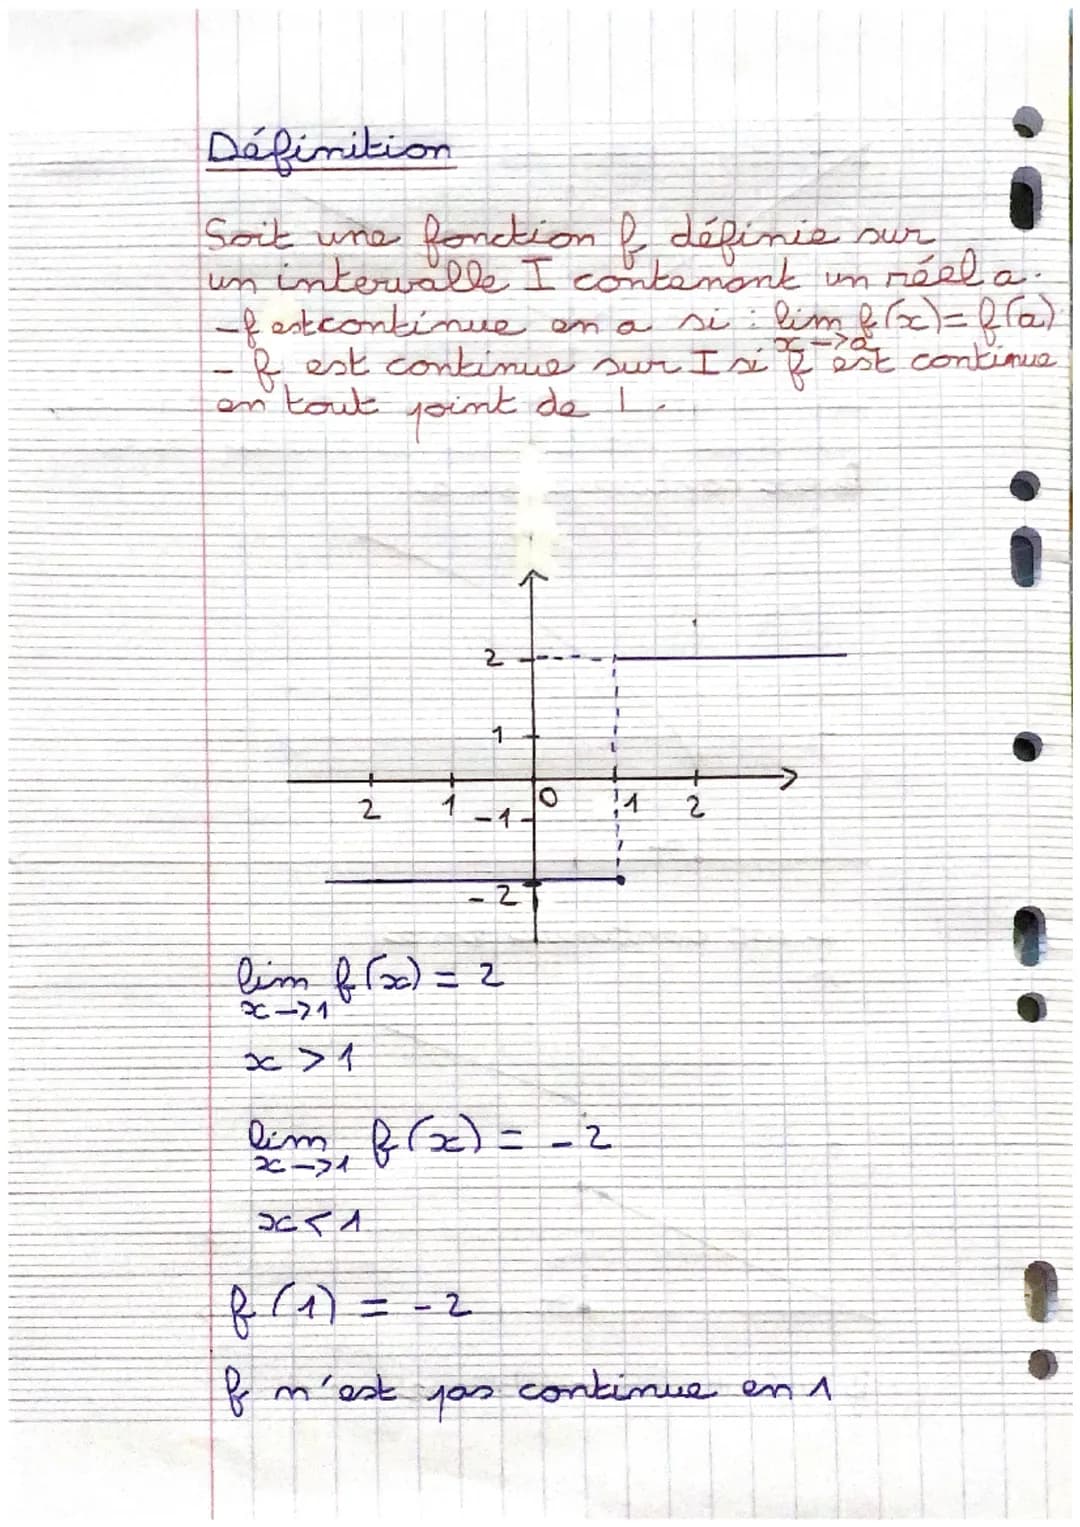 Définition
Soit une fonction f définie sur
un intervalle I contenant un réel a.
- f est continue en a si : lim f(x) = f(a)
x->a
- f est continue sur I si f est continue
en tout point de I.
2
1
2 1 0 1 2
-1
-2
lim f(x) = 2
x->1
x > 1
lim f(x) = -2
x->1
x < 1
f(1) = -2
f n'est pas continue en 1